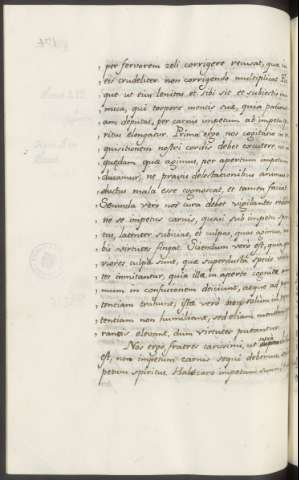 per fervorem zeli corrigere recusat, quæ in
eis crudeliter non corrigendo multiplicat. Fit
que ut eius lenitas et sibi sit et subiectis ini-
mica, qui torpore mentis suæ, quia patien
am deputat, per carnis impetum ab impetu spi
ritus elongatur. Prima ergo nos cogitatio in
quisitionem nostri cordis debet excutere, ne in
quædam quæ agimus, per apertum impetum
ducamur, ne pravis delectationibus animus
ductus mala esse cognoscat, et tamen faciat
Secunda vero nos cura debet vigilantes
ne se impetus carnis, quasi sub impetu spiri
tus, latenter subiiciat, et culpas, quas agimus, no
bis virtutes fingat. Sciendum vero est, quia gra
viores culpæ sint, quæ superducta specie virtu
tes imitantur, quia illæ in aperto cognitæ ani
mum in confusionem deiiciunt, atque ad pœni
tentiam trahunt, istæ verò non solum ad pœni
tentiam non humiliant, sed etiam mentem ope
rantis elevant, dum virtutes putantur.
Nos ergo, fratres carissimi, ut
est, non impetum carnis sequi debemus,
petum spiritus. Habetaro impetum